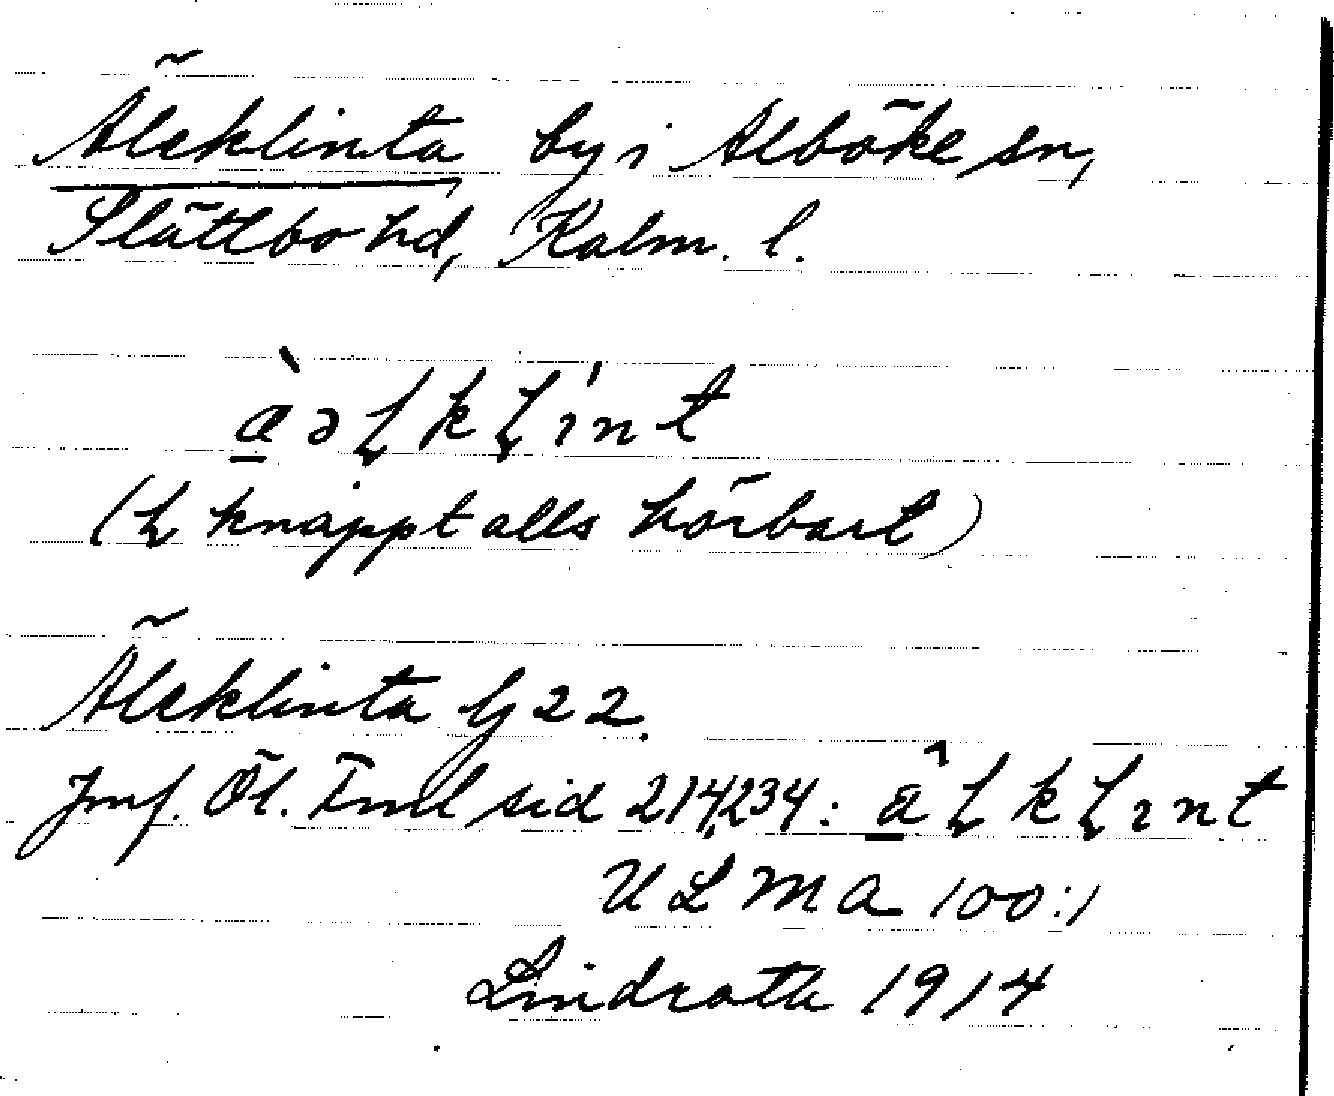 Äleklinta by i Alböke sn,
Slättbo hd, Kalm. l.
æ̱̀əɽkɽı'nt
(ɽ knappt alls hörbart)
Äleklinta bj 22.
Jmf. Öl. Fml sid 214, 234: æ̱̂ɽkɽınt
ULMA 100:1
Lindroth 1914